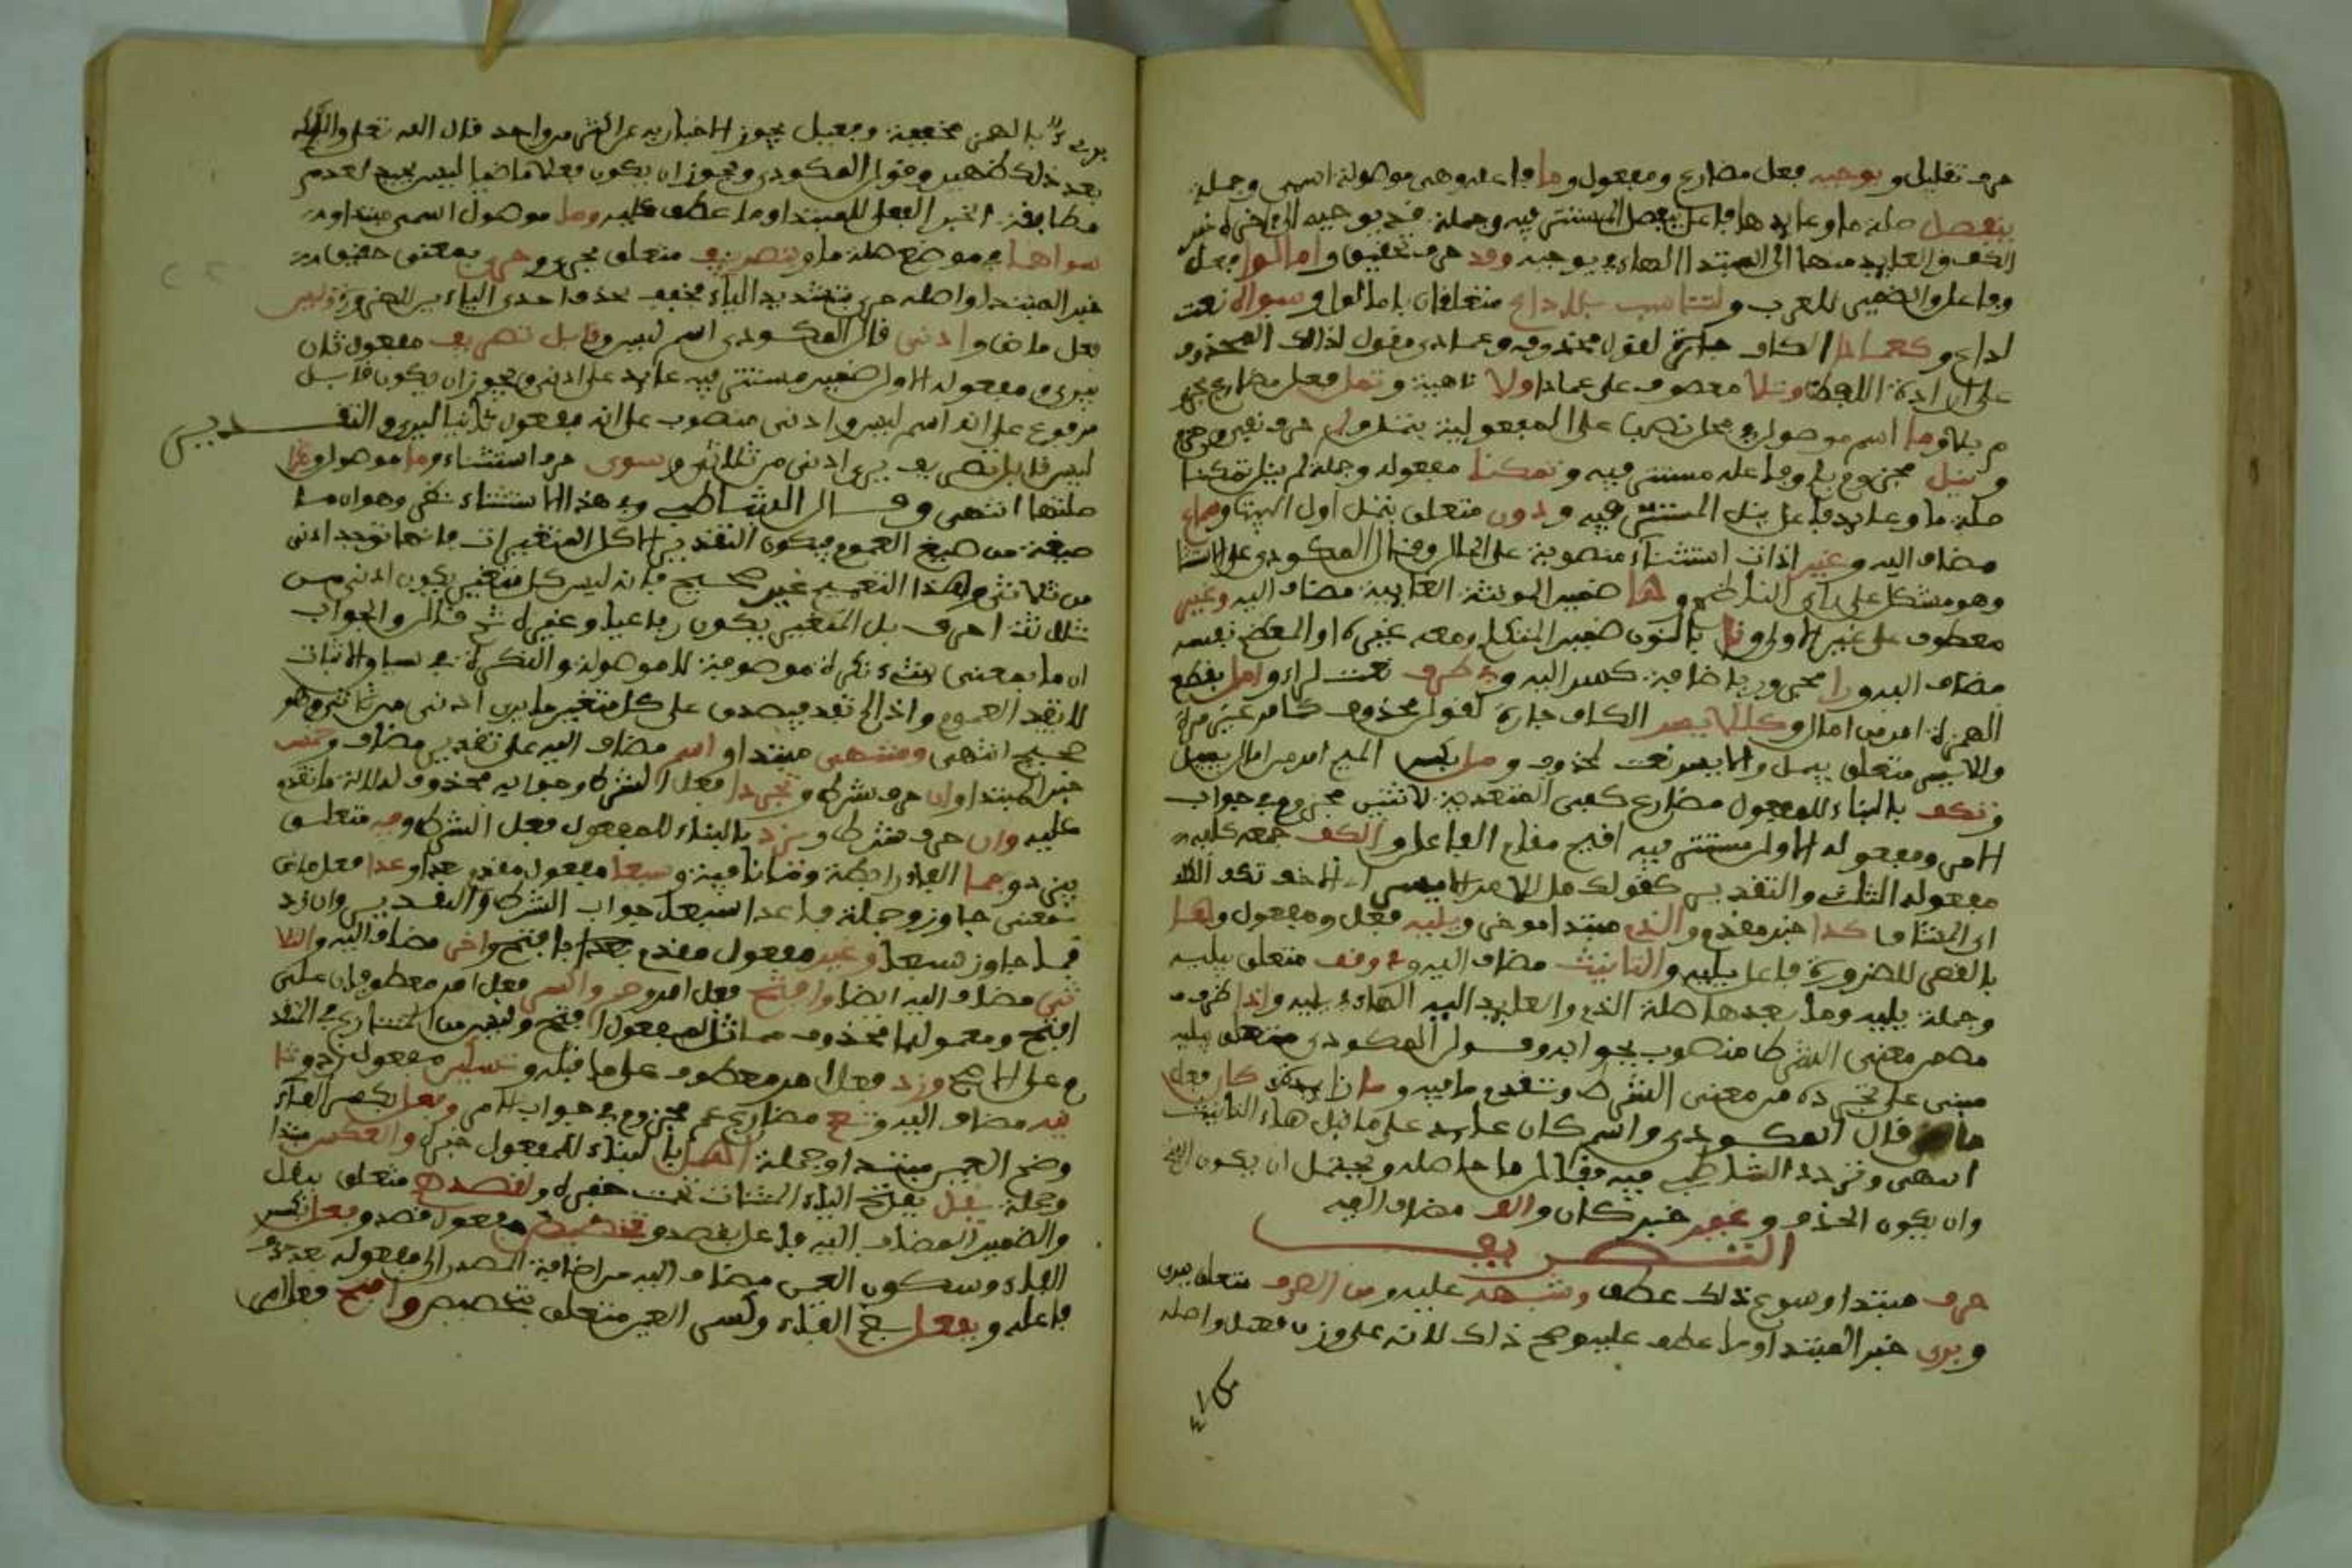 حرف تقليل ويوجبه فعل مضارع ومفعول وما فاعله وهي موصولة اسمي وجملة
ينفصل صلة ما وعايدها فاعل ينفصل المستتر فيه وجملة قد يوجبه
الكف والعايد منها الى المبتدا الهاء في يوجبه وقد حرف تحقيق وامالوا فعل
وفاعل والضمير للعرب ولتناسب بلا داع متعلقان بامالوا وسواه نعت
لداع وكعمادا الكاف جارة لقول محذوف وعمادى مقول لذلك المحذوف
على ارادة اللفظ وتلا معطوف على عمادا ولا ناهية وتمل فعل مضارع مجزوم
بلا وما اسم موصول في محل نصب على المفعولية بتمل ولم حرف نفي وجزم
وينل مجزوم بلم وفاعله مستتر فيه وتمكنا مفعوله وجملة لم ينل تمكنا
صلة ما وعايده فاعل ينل المستتر فيه ودون متعلق بتمل اول البيت وسماع
مضاف اليه وغير اداة استثناء منصوبة على الحال وقال المكودي على الاستثنا
وهو مشكل على راى الناظم وها ضمير المونثة الغايبة مضاف اليه وغير
معطوف على غير الاولى ونا بالنون ضمير المتكلم ومعه غيره او المعظم نفسه
مضاف اليه ورا مجرور باضافة كسر اليه وفي طرف نعت لراء وامل بقطع
الهمزة امر من امال وكللايسر الكاف جارة لقول محذوف كما مر غير مرة
وللايسر متعلق بمل والايسر نعت لمحذوف ومل بكسر الميم امر من امال يميل
وتكف بالبناء للمفعول مضارع كفى المتعدية لاثنين مجزوم في جواب
الامر ومفعوله الاول مستتر فيه اقيم مقام الفاعل والكلف جمع كلفة
مفعوله الثاني والتقدير كقولك مل للامر الايسر اى الاخف تكف الكلف
اى المشاق كذا خبر مقدم والذي مبتدا موخر ويليه فعل ومفعول وها
بالقصر للضرورة فاعل يليه والتانيث مضاف اليه وفي وقف متعلق بيليه
وجملة يليه وما بعدها صلة الذي والعايد اليه الهاء في يليه واذا ظرف
مضمر معنى الشرط منصوب بجوابه وقول المكودي متعلق بيليه
مبني على تجرده من معنى الشرط وتقدم ما فيه وما زايدة كان فعل
ماض قال المكودي واسم كان عايد على ما قبل هاء التانيث
انتهى وتردد الشاطبي فيه فقال ما حاصله ويحتمل ان يكون
وان يكون الحذف وغير خبر كان والف مضاف اليه
التصريف
حرف مبتدا وسوغ ذلك عطف وشبهه عليه ومن الصرف متعلق ببرى
وبرى خبر المبتدا وما عطف عليه وصح ذلك لانه على وزن فعيل واصله
برىء بالهمز مخففة وفعيل يجوز الاخبار به عن اكثر من واحد قال الله تعلى والملائكة
بعد ذلك ظهير وقول المكودي ويجوز ان يكون فعلا ماضيا ليس بجيد لعدم
مطابقة الخبر الفعل للمبتدا وما عطف عليه وما موصول اسمي مبتدا
سواهما في موضع صلة ما وبتصريف متعلق بحرى وحرى بمعنى حقيق
خبر المبتدا واصله حرى بتشديد الياء مخفف بحذف احدى الياءين للضرورة وليس
فعل ماض وادنى قال المكودي اسم ليس وقابل تصريف مفعول ثان
بيرى ومفعوله الاول ضمير مستتر فيه عايد على ادنى ويجوز ان يكون قابل
مرفوع على انه اسم ليس وادنى منصوب على انه مفعول ثان ليرى والتقدير
ليس قابل تصريف يرى ادنى من ثلاثي وسوى حرف استثناء وما موصول وغيرا
صلتها انتهى وقال الشاطبي وفي هذا الاستثناء نظر وهو ان ما
صيغة من صيغ العموم فيكون التقدير الا كل المتغيرات فانها توجد ادنى
من ثلاثي وهذا التعميم غير صحيح فانه ليس كل متغير يكون ادنى من
ثلاثة احرف بل المتغير يكون رباعيا وغيره ثم قال والجواب
ان ما بمعنى شيء نكرة موصوفة لا موصولة والنكرة في سياق الاثبات
لا تفيد العموم واذا لم تفد فيصدق على كل متغير ما يرى ادنى من ثلاثي وهو
صحيح انتهى ومنتهى مبتدا واسم مضاف اليه على تقدير مضاف وخمس
خبر المبتدا وان حرف شرط وتجردا فعل الشرط وجوابه محذوف لدلالة ما تقدم
عليه وان حرف شرط ويزد بالبناء للمفعول فعل الشرط وفيه متعلق
بيزد وفما الفاء رابطة وما نافية وسبعا مفعول مقدم بعدا وعدا فعل ماض
بمعنى جاوز وجملة فما عدا سبعا جواب الشرط والتقدير وان يزد
فما جاوز سبعا وغير مفعول مقدم بافتح واخر مضاف اليه والثلا
ثي مضاف اليه ايضا وافتح فعل امر وضم واكسر فعل امر معطوفان على
افتح ومعمولهما محذوف مماثل لمفعول افتح وليس من التنازع في المتقد
م على الاصح وزد فعل امر معطوف على ما قبله وتسكين مفعول زد وثا
نيه مضاف اليه وتعم مضارع عم مجزوم في جواب الامر وفعل بكسر الفاء
وضم العين مبتدا وجملة اهمل بالبناء للمفعول خبره والعكس مبتدا
وجملة يقل بفتح الياء المثناة تحت خبره ولقصدهم متعلق بيقل
والضمير المضاف اليه فاعل بقصد وتخصيص مفعول قصد وفعل بكسر
الفاء وسكون العين مضاف اليه من اضافة المصدر الى مفعوله بعد حذف
فاعله وبفعل بضم الفاء وكسر العين متعلق بتخصيص وافتح فعل امر